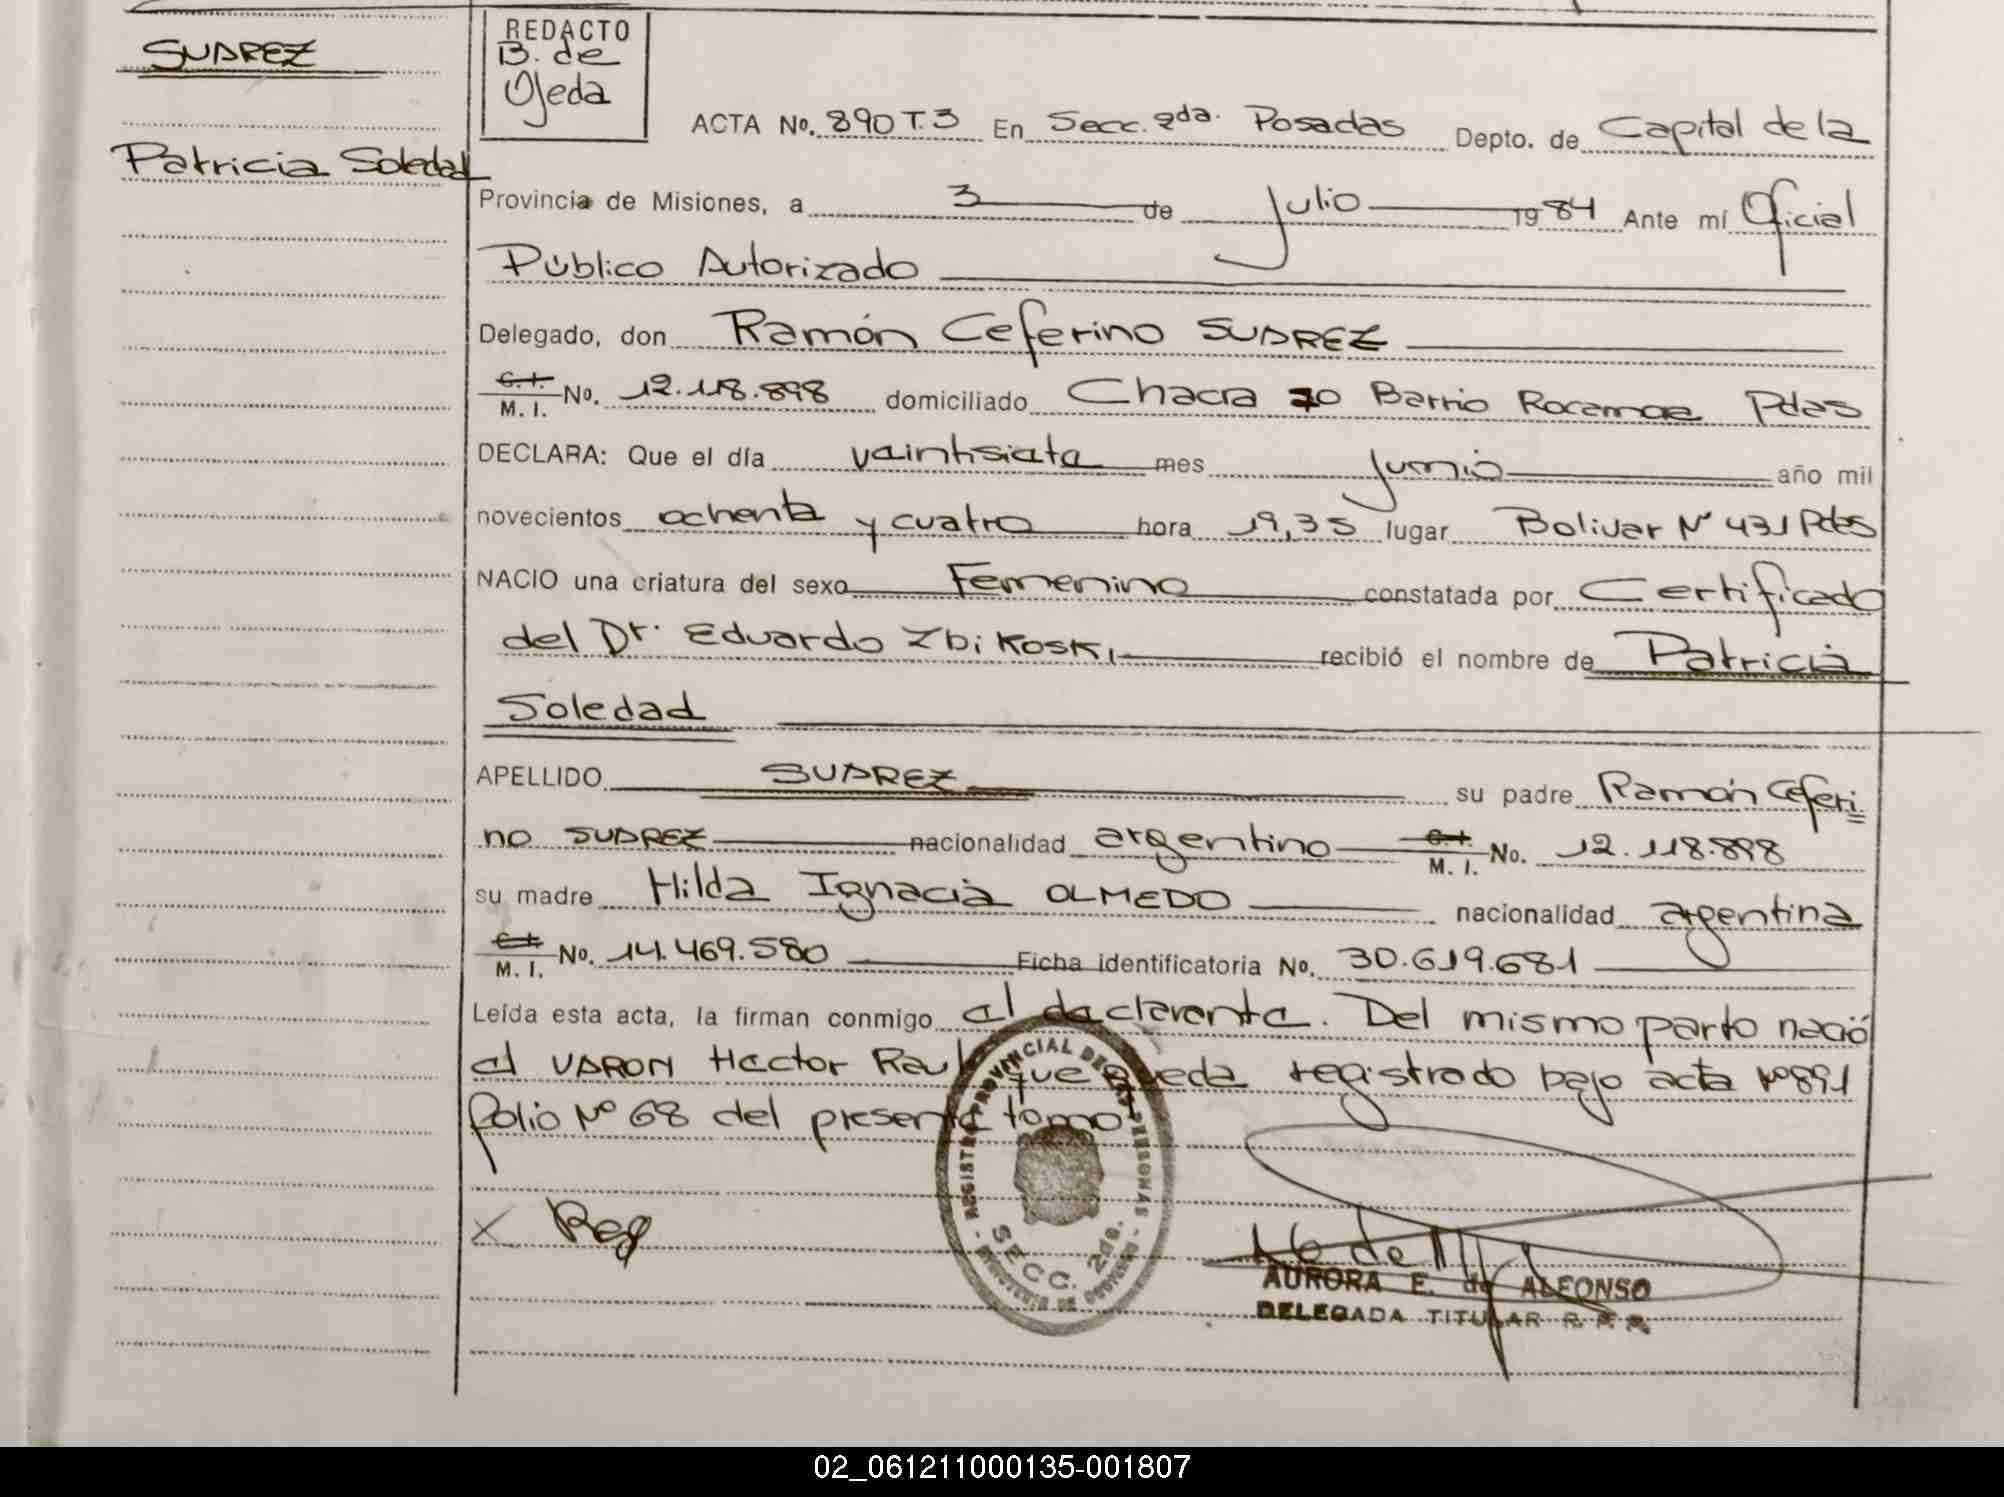 SUAREZ
Patricia Soledad
REDACTO
B. de
Ojeda
ACTA No. 890 T.3 En Secc. 2da. Posadas Depto. de Capital de la
Provincia de Misiones, a 3 de Julio 1984 Ante mí Oficial
Público Autorizado
Delegado, don Ramón Ceferino SUAREZ
C.I. M. I. No. 12.118.898 domiciliado Chacra 70 Barrio Rocamora Pdas
DECLARA: Que el día veintisiete mes junio año mil
novecientos ochenta y cuatro hora 19,35 lugar Bolivar Nº 431 Pdas
NACIO una criatura del sexo Femenino constatada por Certificado
del Dr. Eduardo Zbikoski recibió el nombre de Patricia
Soledad
APELLIDO SUAREZ su padre Ramón Ceferi
no SUAREZ nacionalidad argentino C.I. M. I. No. 12.118.898
su madre Hilda Ignacia OLMEDO nacionalidad argentina
C.I. M. I. No. 14.469.580 Ficha identificatoria No. 30.619.681
Leída esta acta, la firman conmigo el declarente. Del mismo parto nació
el VARON Hector Raul que queda registrado bajo acta Nº 891
folio Nº 68 del presente tomo
REGISTRO PROVINCIAL DE LAS PERSONAS
SECC. 2da.
MINISTERIO DE GOBIERNO
X
AURORA E. de ALFONSO
DELEGADA TITULAR R. P. P.
02_061211000135-001807